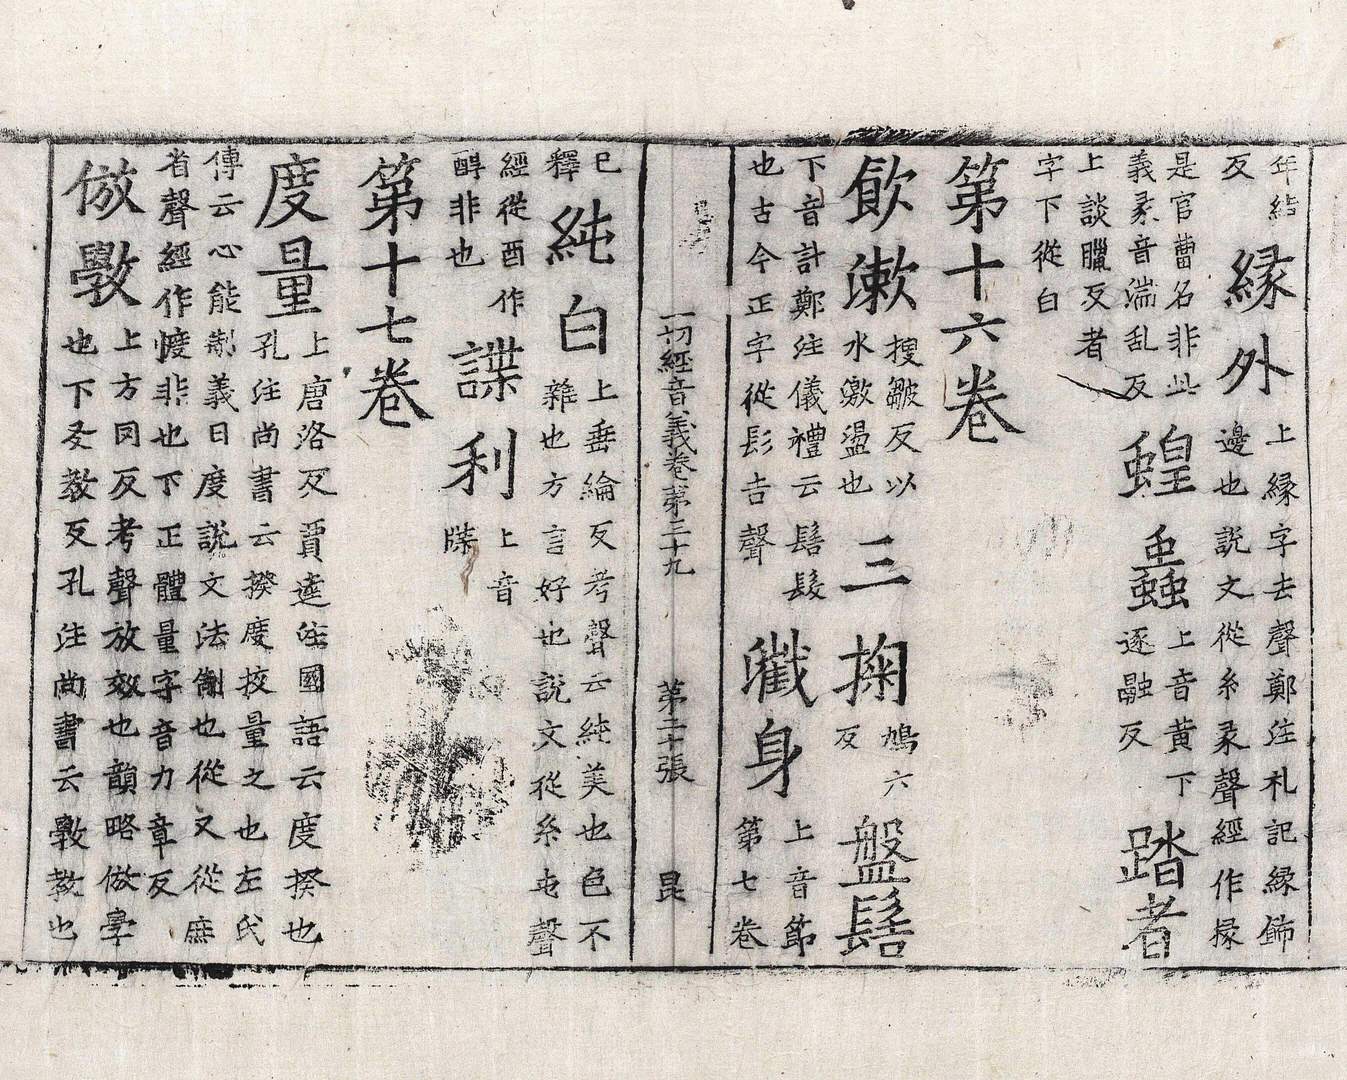 年結
反
緣外
上緣字去聲鄭注礼記緣飾
邊也說文從糸彖聲經作掾
是官曹名非此
義彖音湍乱反
蝗蟲
上音黄下
逐融反
踏者
上談臘反者
字下從白
第十六卷
飲漱
搜皺反以
水激盪也
三掬
鳩六
反
盤髻
下音計鄭注儀禮云髻髮
也古今正字從髟吉聲
身
上音節
第七卷
一切經音義卷第三十九 第二十張 昆
已
釋
純白
上垂綸反考聲云純美也色不
雜也方言好也說文從糸屯聲
經從酉作
醇非也
諜利
上音
牒
第十七卷
度量
上唐洛反賈逵注國語云度揆也
孔注尚書云揆度挍量之也左氏
傳云心能制義曰度說文法制也從又從庶
省聲經作非也下正體量字音力章反
倣斅
上方罔反考聲放效也韻略倣學
也下爻教反孔注尚書云斅教也